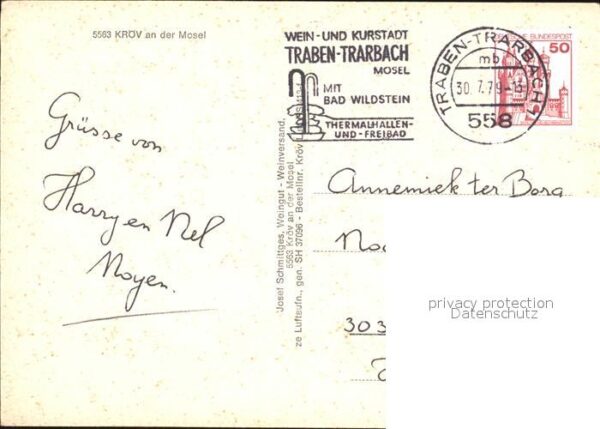 5563 KRÖV an der Mosel
WEIN- UND KURSTADT
TRABEN-TRARBACH
MOSEL
MIT
BAD WILDSTEIN
THERMALHALLEN-
UND-FREIBAD
TRABEN-TRARBACH 1
mb
30.7.79-18
558
DEUTSCHE BUNDESPOST
50
Grüsse von
Harry en Nel
Moyen.
Josef Schmittges, Weingut - Weinversand,
5563 Kröv an der Mosel
ze Luftaufn., gen. SH 37096 - Bestellnr. Kröv
Annemiek ter Borg
303
privacy protection
Datenschutz